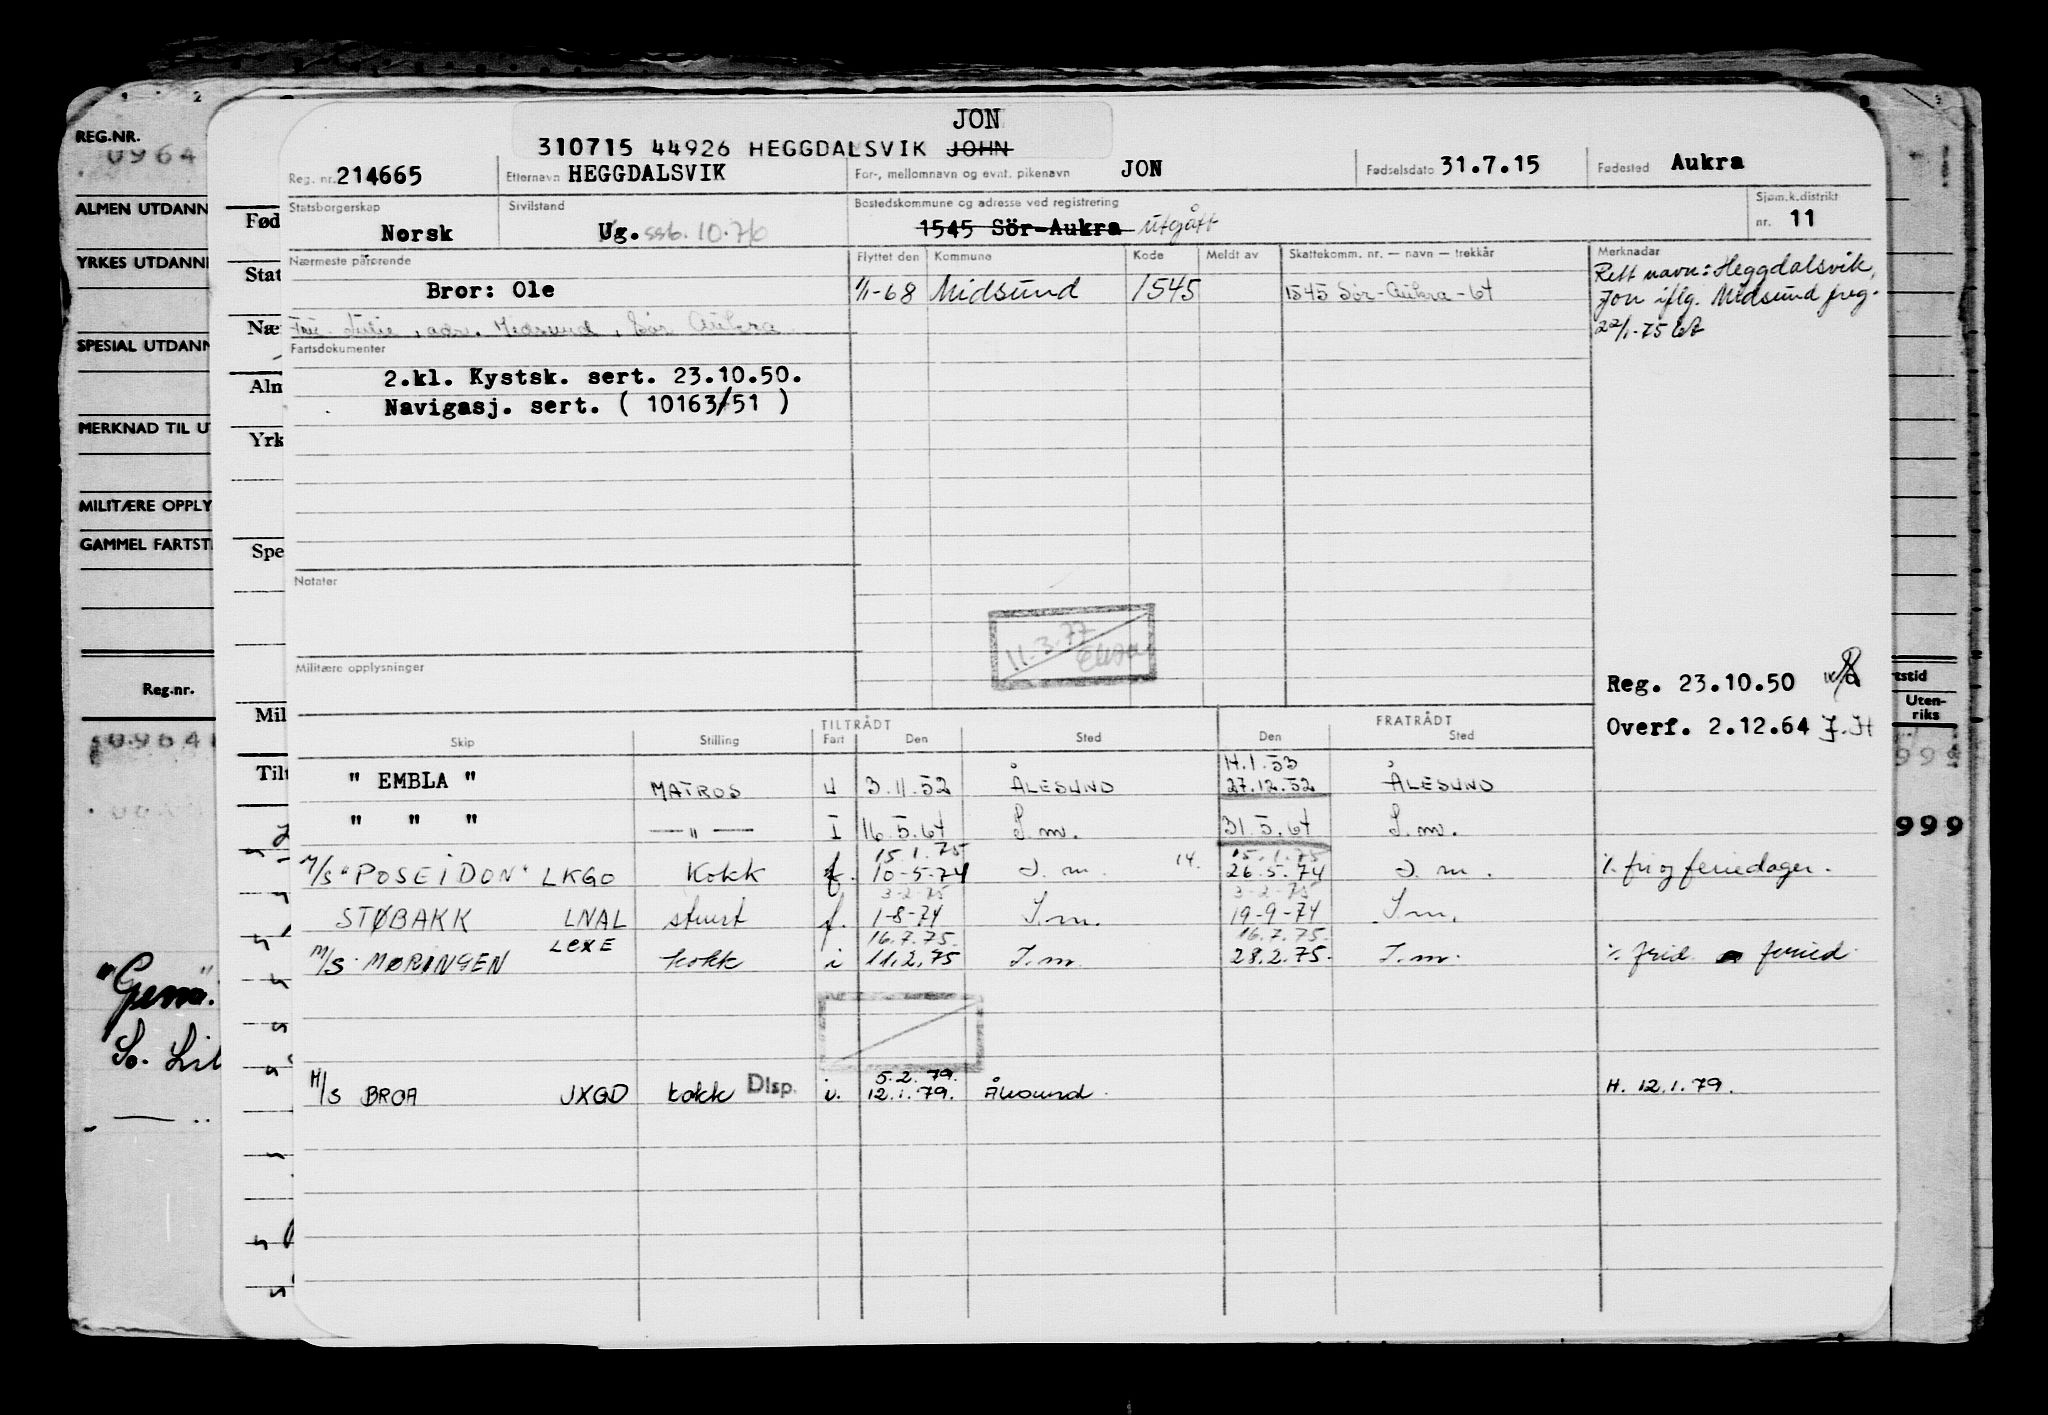 JON
310715 44926 HEGGDALSVIK JOHN
Reg. nr. 214665 Etternavn HEGGDALSVIK For-, mellomnavn og evnt. pikenavn JON Fødselsdato 31.7.15 Fødested Aukra
Statsborgerskap Norsk Sivilstand Ug. ssb. 10.76 Bostedskommune og adresse ved registrering 1545 Sör-Aukra utgått Sjøm.k.distrikt nr. 11
Nærmeste pårørende Flyttet den Kommune Kode Meldt av Skattekomm. nr. — navn — trekkår Merknadar
Bror: Ole 1/1-68 Midsund 1545 1545 Sør-Aukra-64
Rett navn: Heggdalsvik,
Jon iflg. Midsund freg.
22/1-75
Julie, adr. Midsund, Sør Aukra
Fartsdokumenter
2.kl. Kystsk. sert. 23.10.50.
Navigasj. sert. ( 10163/51 )
Notater
11.3.77
Militære opplysninger
Reg. 23.10.50
Overf. 2.12.64 J.H
TILTRÅDT FRATRÅDT
Skip Stilling Fart Den Sted Den Sted
H.1.53
" EMBLA " MATROS U 3.11.52 ÅLESUND 27.12.52 ÅLESUND
" " " —"— I 16.5.64 S.m. 31.5.64 S.m.
15.1.75 14. 15.1.75
M/S "POSEIDON" LKGO Kokk f. 10-5-74 S.m. 26.5.74 S.m. ./. fri og feriedager.
3-2-75 3-2-75
STØBAKK LNAL stuert f. 1-8-74 S.m. 19-9-74 S.m.
LCXE 16.7.75. 16.7.75.
M/S MØRINGEN kokk i 11.2.75 S.m 28.2.75. S.m. ./. frid feried.
5.2.79.
M/S BROA JXGD kokk Disp. i. 12.1.79. Ålesund. H. 12.1.79.
REG.NR.
0964
ALMEN UTDANN
YRKES UTDANN
SPESIAL UTDANN
MERKNAD TIL U
MILITÆRE OPPLY
GAMMEL FARTST
Reg.nr.
0964
Fød
Stat
Nær
Alm
Yrk
Spe
Mil
Tilt
tstid
Uten-
riks
999
999